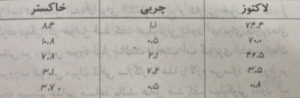 لاکتوز چربی خاکستر
۷۴.۴ ۱.۱ ۸.۴
۷۰.۰ ۰.۵ ۱۰.۸
۴۶.۵ ۲.۱ ۷.۸
۳.۵ ۷.۲ ۳.۱
۰.۸ ۰.۵ ۳.۷۰